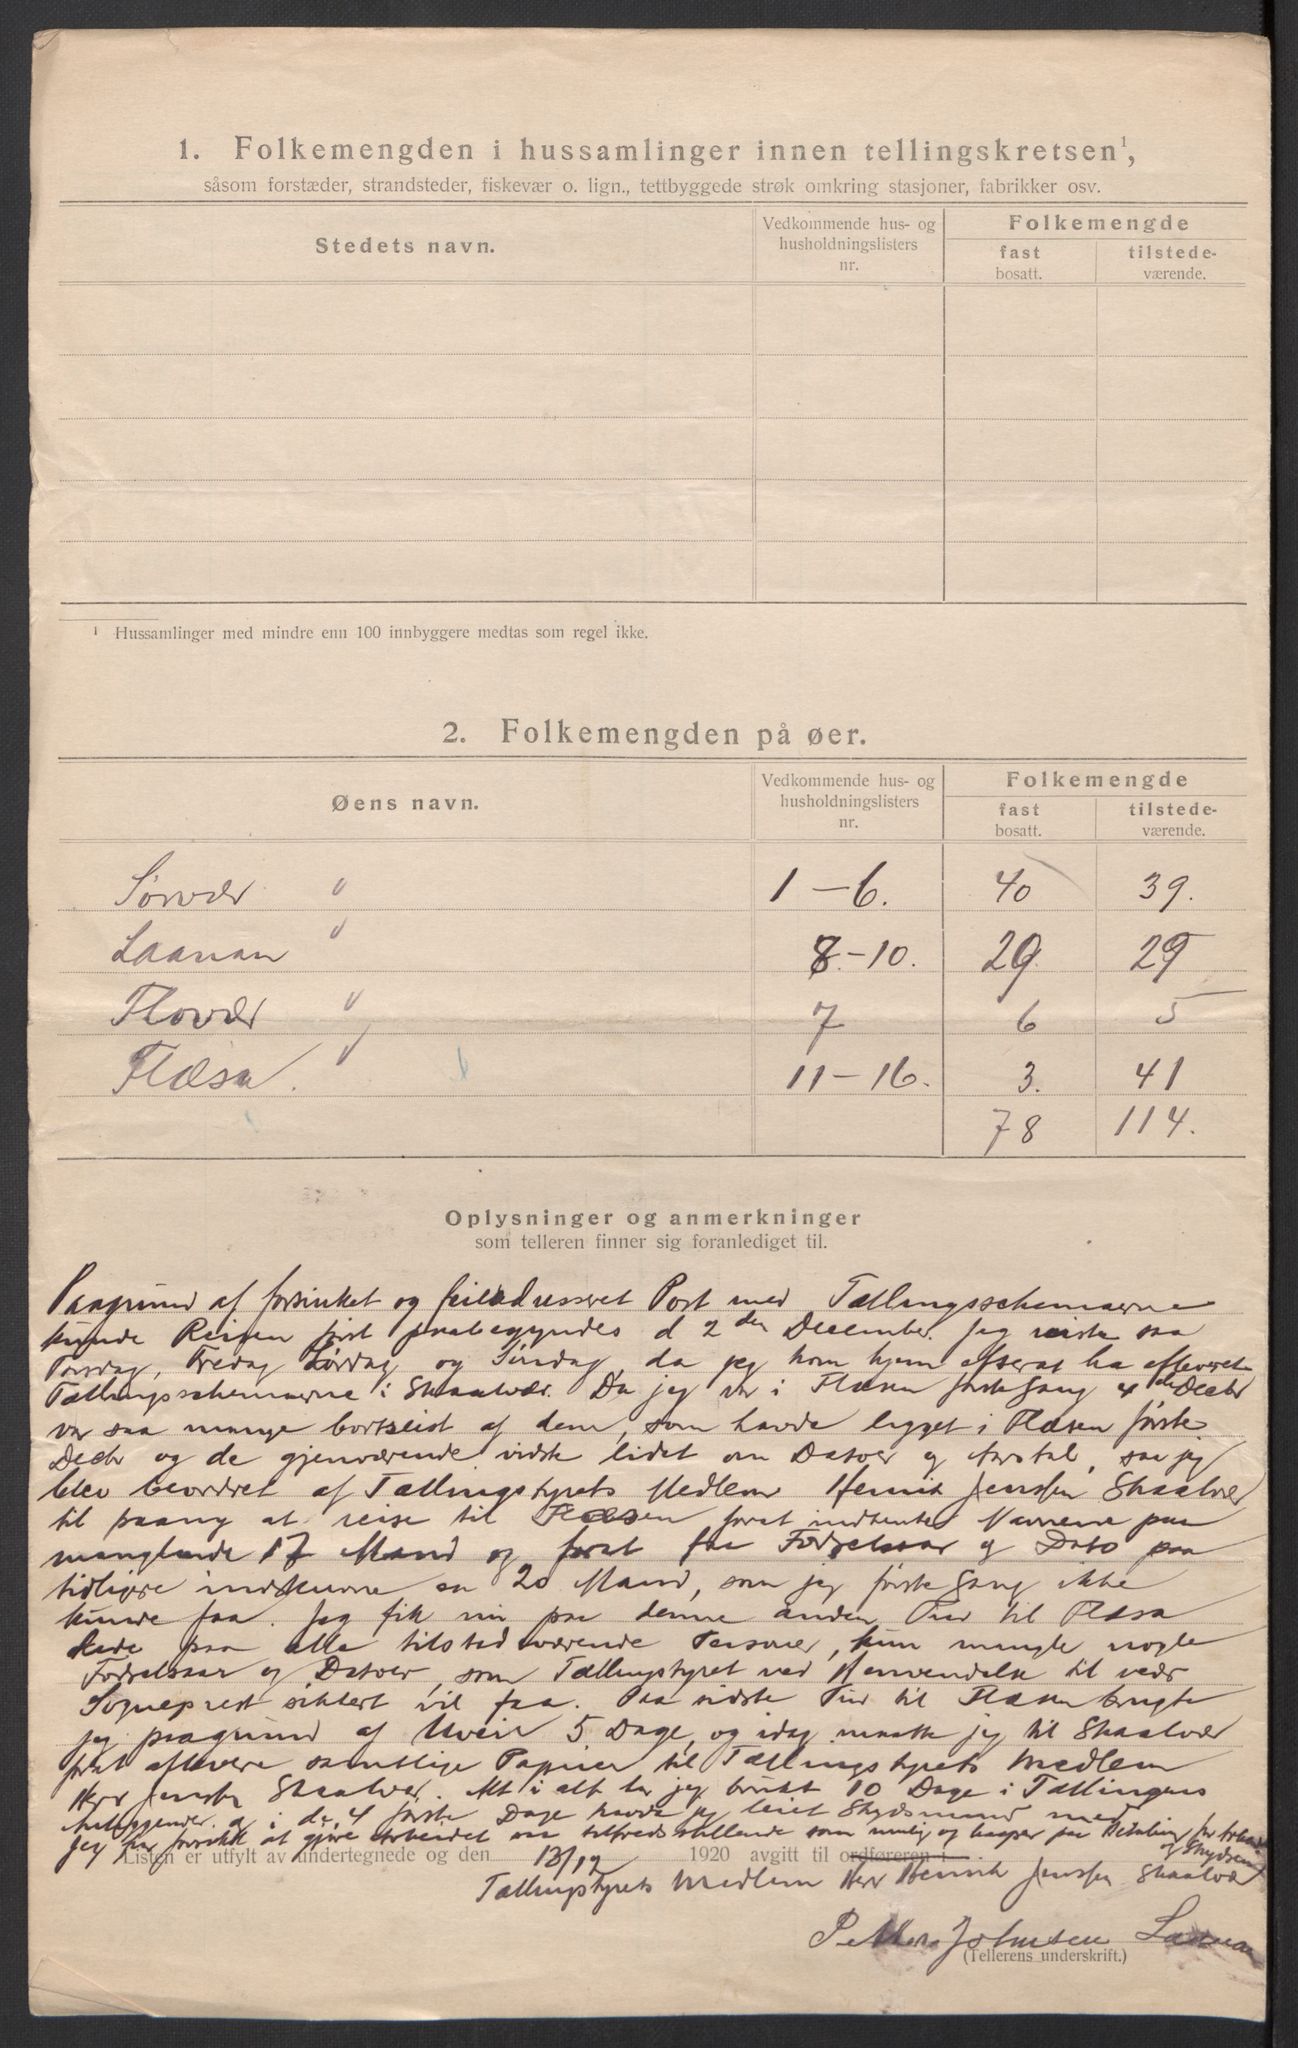 1. Folkemengden i hussamlinger innen tellingskretsen¹,
såsom forstæder, strandsteder, fiskevær o. lign., tettbyggede strøk omkring stasjoner, fabrikker osv.
Stedets navn.
Vedkommende hus- og husholdningslisters nr.
Folkemengde
fast bosatt.
tilstede-værende.
¹ Hussamlinger med mindre enn 100 innbyggere medtas som regel ikke.
2. Folkemengden på øer.
Øens navn.
Vedkommende hus- og husholdningslisters nr.
Folkemengde
fast bosatt.
tilstede-værende.
Sørvær 1-6. 40 39.
Laanan 8-10. 29. 29
Flovær 7 6 5
Flæsa. 11-16. 3. 41
78 114.
Oplysninger og anmerkninger
som telleren finner sig foranlediget til.
Paagrund af forsinket og feiladresseret Post med Tællingsschemaerne
kunde Reisen først paabegyndes d 2den December. Jeg reiste saa
Torsdag, Fredag Lørdag og Søndag, da jeg kom hjem efterat ha afleveret
Tællingsschemaerne i Skaalvær. Da jeg var i Flæsen første Gang 4de Decbr
var saa mange bortreist af dem, som havde ligget i Flæsen første
Decbr og de gjenværende vidste lidet om Datoer og Aarstal, saa jeg
blev beordret af Tællingstyrets Medlem Henrik Jenssen Skaalvær
til paany at reise til Flæsen, forat indhente Navnene paa
manglende 17 Mand og forat faa Fødselsaar og Dato paa
tidligere indskrevne en 20 Mand, som jeg første Gang ikke
kunde faa. Jeg fik nu paa denne anden Tur til Flæsa
Rede paa alle tilstedværende Personer, kun mangle nogle
Fødselsaar og Datoer, som Tællingstyret ved Henvendelse til vedk
Sogneprest sikkert vil faa. Paa sidste Tur til Flæsen brugte
jeg paagrund af Uveir 5 Dage, og idag maatte jeg til Skaalvær
forat aflevere samtlige Papirer til Tællingstyrets Medlem
Herr Jenssen Skaalvær. Alt i alt har jeg brukt 10 Dage i Tællingens
og i de 4 første Dage havde jeg leiet Skydsmand med
Jeg har forsøkt at gjøre Arbeidet saa tilfredsstillende som mulig og haaper paa Betaling for Arbeide
og Skydsen
Listen er utfylt av undertegnede og den 13/12 1920 avgitt til ordføreren i
Tællingstyrets Medlem Herr Henrik Jenssen Skaalvær
Petter Johnsen Laanan
(Tellerens underskrift.)